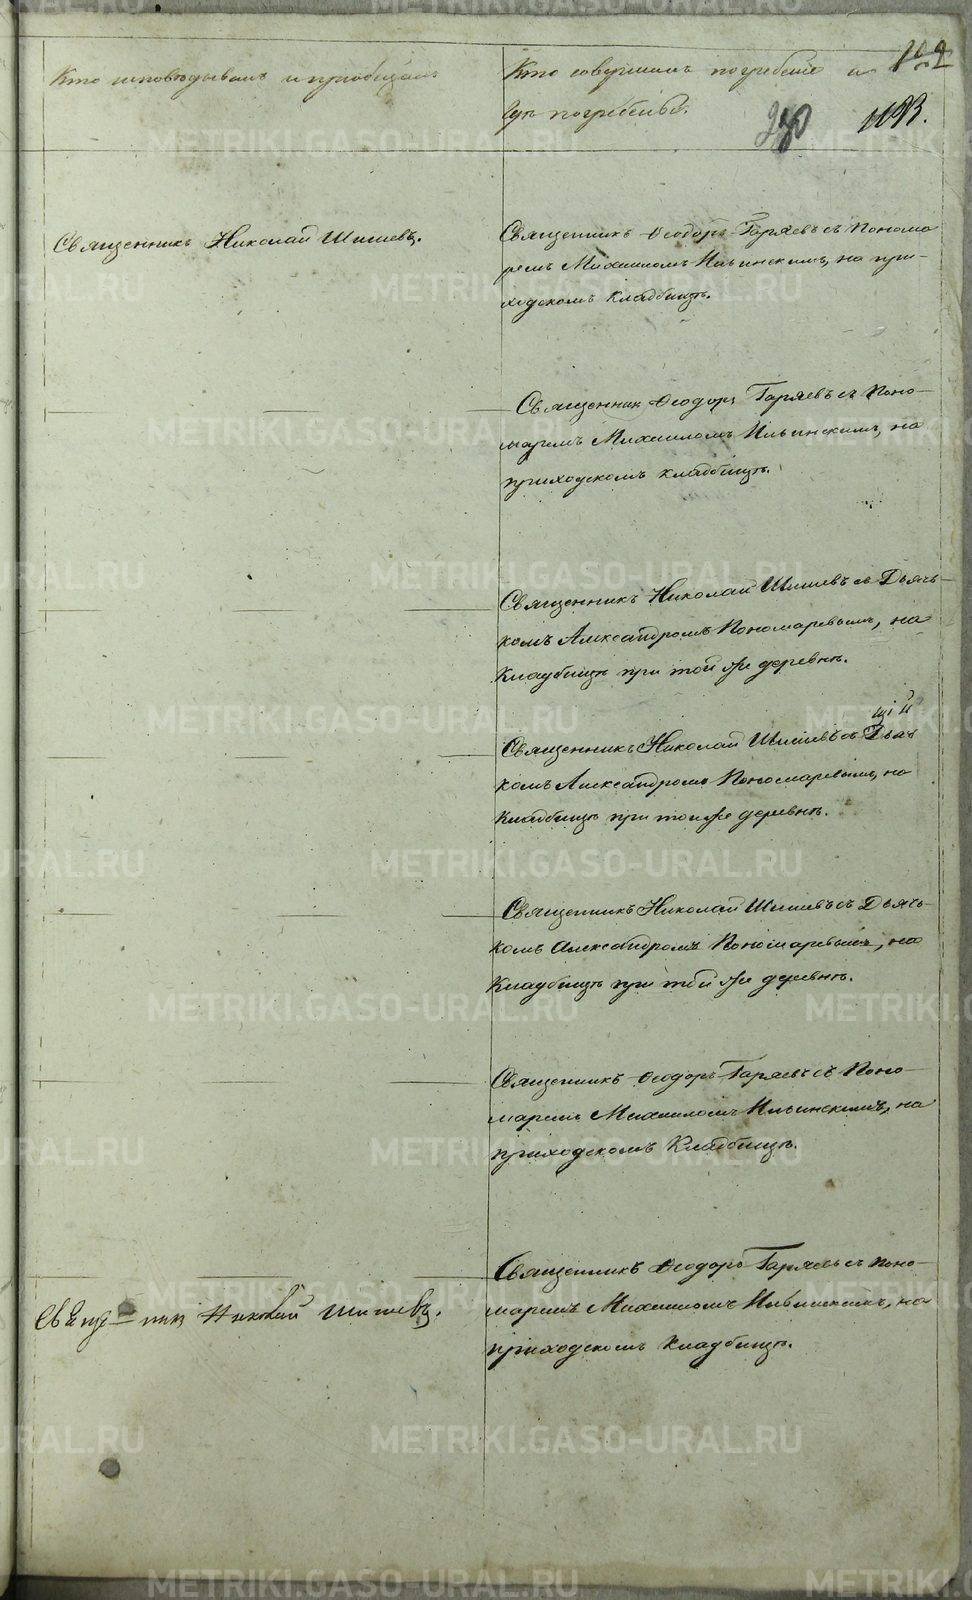 Кто исповѣдывалъ и пріобщалъ
Кто совершалъ погребеніе и
гдѣ погребены.
1193.
Священникъ Николай Шишевъ.
Священникъ Ѳеодоръ Гаряевъ съ Понома
ремъ Михаиломъ Ильинскимъ, на при-
ходскомъ кладбищѣ.
Священник Ѳеодоръ Гаряевъ съ Поно-
маремъ Михаиломъ Ильинскимъ, на
приходскомъ кладбищѣ.
Священникъ Николай Шишевъ съ Дьячь-
комъ Александромъ Пономаревымъ, на
кладбищѣ при той же деревнѣ.
Священникъ Николай Шишевъ съ Дьяч
комъ Александромъ Пономаревымъ, на
кладбищѣ при той же деревнѣ.
Священникъ Николай Шишевъ съ Дьячь-
комъ Александромъ Пономаревымъ, на
кладбищѣ при той же деревнѣ.
Священникъ Ѳеодоръ Гаряевъ съ Поно-
маремъ Михаиломъ Ильинскимъ, на
приходскомъ Кладбищѣ.
Священникъ Ѳеодоръ Гаряевъ съ Поно-
маремъ Михаиломъ Ильинскимъ, на
приходскомъ кладбищѣ.
Николай Шишевъ.
METRIKI.GASO-URAL.RU